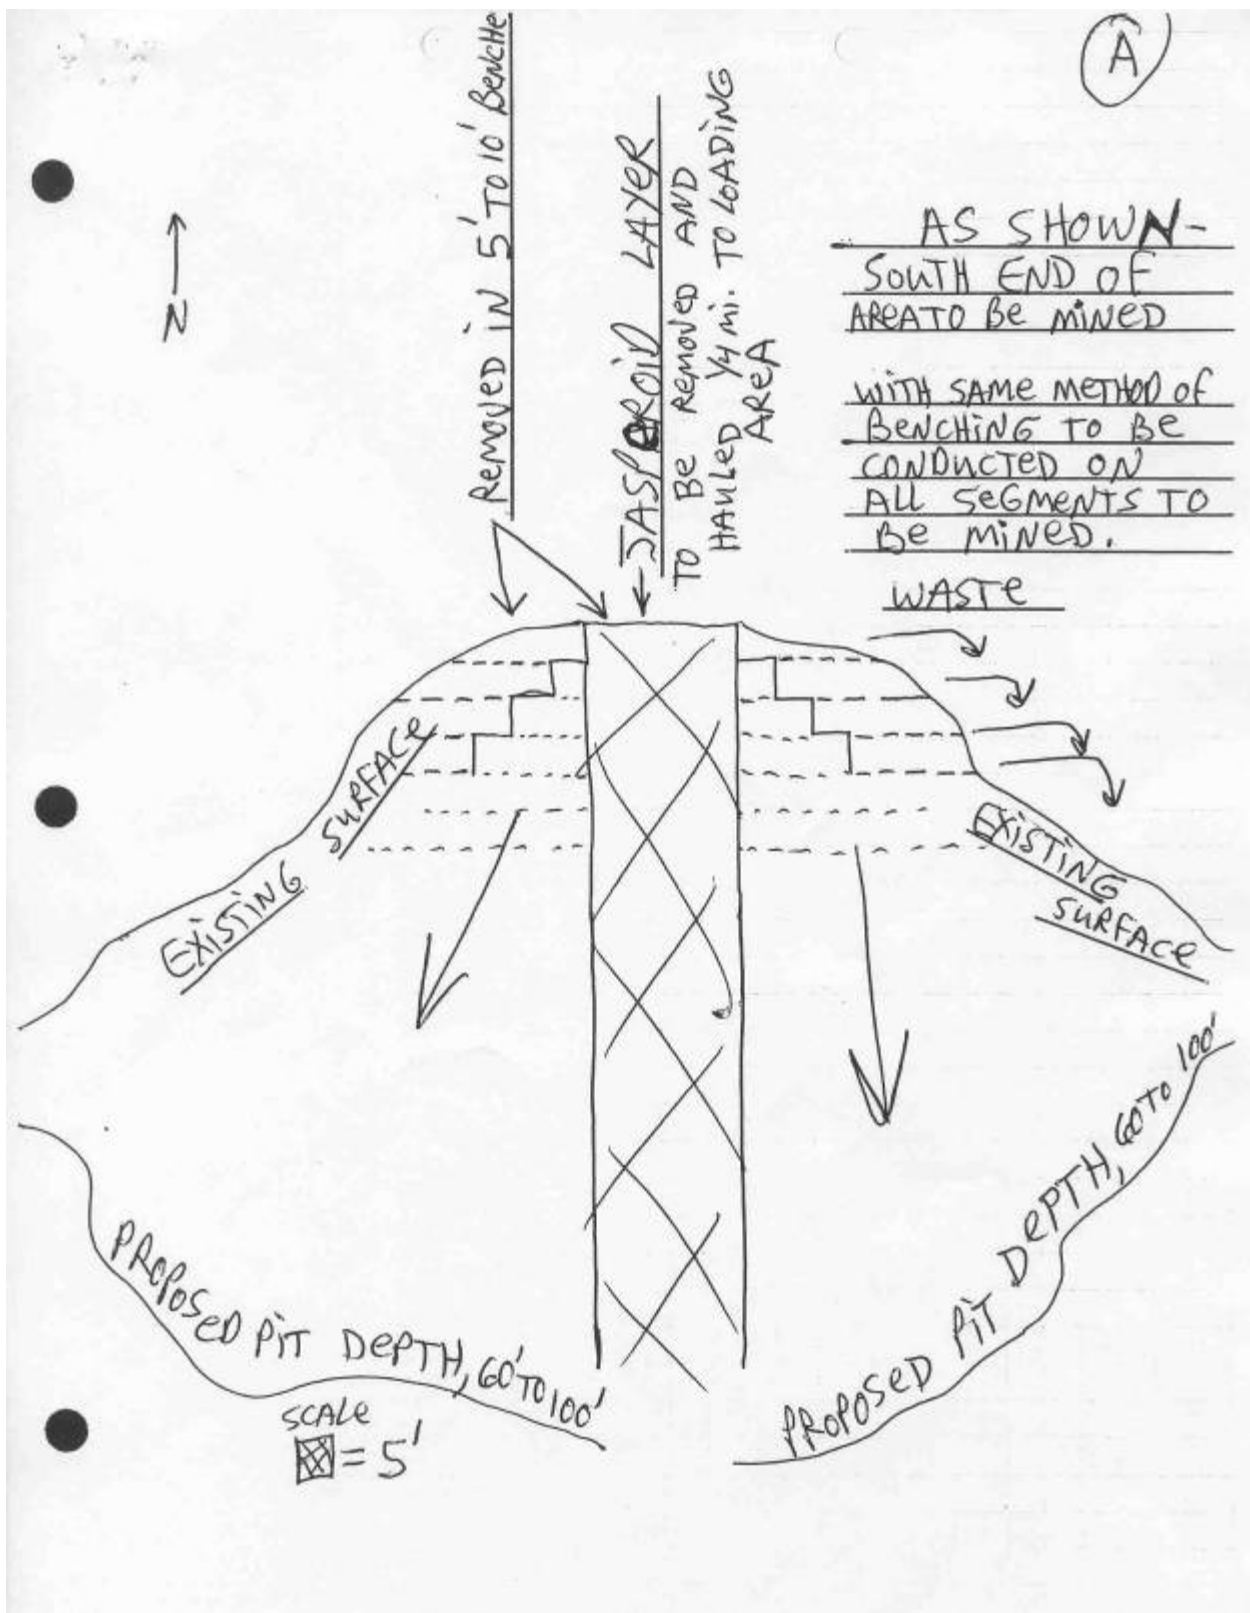 A
N
REMOVED IN 5' TO 10' BENCHE
JASPEROID LAYER
TO BE REMOVED AND
HAULED 1/4 Mi. TO LOADING
AREA
AS SHOWN-
SOUTH END OF
AREA TO BE MINED
WITH SAME METHOD OF
BENCHING TO BE
CONDUCTED ON
ALL SEGMENTS TO
BE MINED.
WASTE
EXISTING SURFACE
EXISTING
SURFACE
PROPOSED PIT DEPTH, 60' TO 100'
PROPOSED PIT DEPTH, 60 TO 100'
SCALE
= 5'